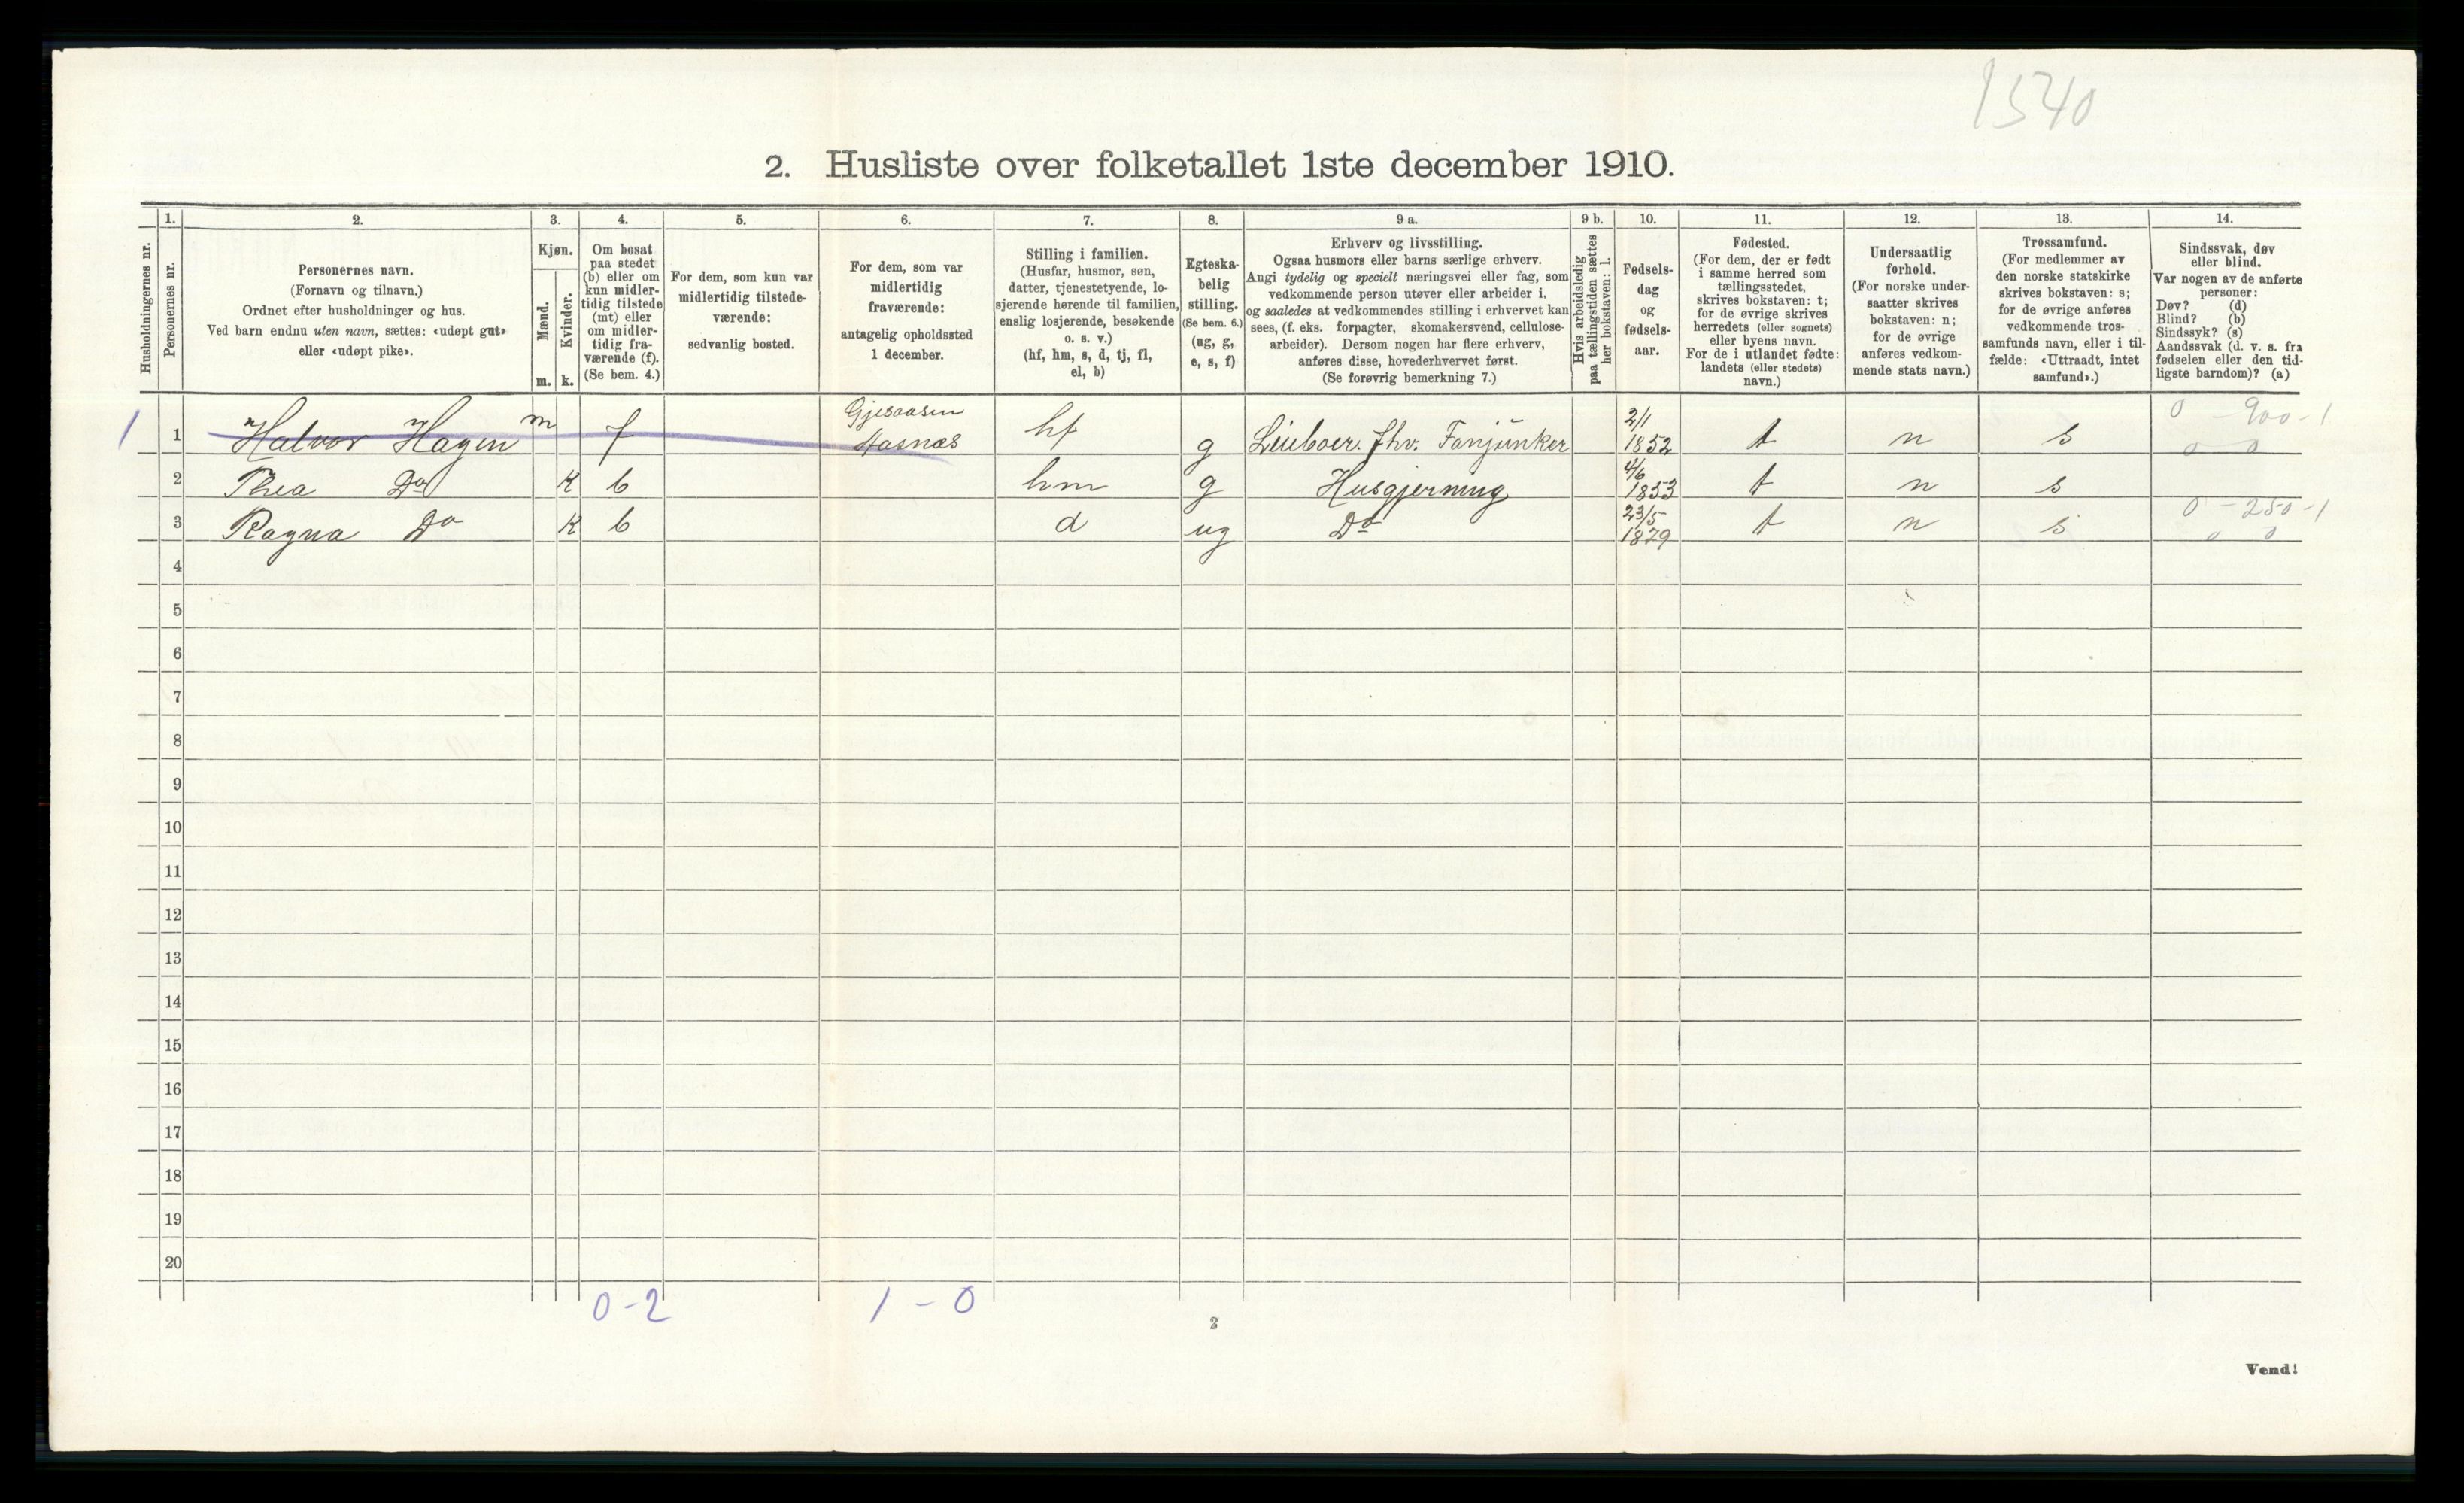 1540
2. Husliste over folketallet 1ste december 1910.
Husholdningernes nr.
1.
Personernes nr.
2.
Personernes navn.
(Fornavn og tilnavn.)
Ordnet efter husholdninger og hus.
Ved barn endnu uten navn, sættes: «udøpt gut»
eller «udøpt pike».
3.
Kjøn.
Mænd.
Kvinder.
m. k.
4.
Om bosat
paa stedet
(b) eller om
kun midler-
tidig tilstede
(mt) eller
om midler-
tidig fra-
værende (f).
(Se bem. 4.)
5.
For dem, som kun var
midlertidig tilstede-
værende:
sedvanlig bosted.
6.
For dem, som var
midlertidig
fraværende:
antagelig opholdssted
1 december.
7.
Stilling i familien.
(Husfar, husmor, søn,
datter, tjenestetyende, lo-
sjerende hørende til familien,
enslig losjerende, besøkende
o. s. v.)
(hf, hm, s, d, tj, fl,
el, b)
8.
Egteska-
belig
stilling.
(Se bem. 6.)
(ug, g,
e, s, f)
9 a.
Erhverv og livsstilling.
Ogsaa husmors eller barns særlige erhverv.
Angi tydelig og specielt næringsvei eller fag, som
vedkommende person utøver eller arbeider i,
og saaledes at vedkommendes stilling i erhvervet kan
sees, (f. eks. forpagter, skomakersvend, cellulose-
arbeider). Dersom nogen har flere erhverv,
anføres disse, hovederhvervet først.
(Se forøvrig bemerkning 7.)
9 b.
Hvis arbeidsledig
paa tællingstiden sættes
her bokstaven: l.
10.
Fødsels-
dag
og
fødsels-
aar.
11.
Fødested.
(For dem, der er født
i samme herred som
tællingsstedet,
skrives bokstaven: t;
for de øvrige skrives
herredets (eller sognets)
eller byens navn.
For de i utlandet fødte:
landets (eller stedets)
navn.)
12.
Undersaatlig
forhold.
(For norske under-
saatter skrives
bokstaven: n;
for de øvrige
anføres vedkom-
mende stats navn.)
13.
Trossamfund.
(For medlemmer av
den norske statskirke
skrives bokstaven: s;
for de øvrige anføres
vedkommende tros-
samfunds navn, eller i til-
fælde: «Uttraadt, intet
samfund».)
14.
Sindssvak, døv
eller blind.
Var nogen av de anførte
personer:
Døv? (d)
Blind? (b)
Sindssyk? (s)
Aandssvak (d. v. s. fra
fødselen eller den tid-
ligste barndom)? (a)
1 1 Halvor Hagen m f Gjesaasen Hasnæs hf g fhv. Fanjunker 2/1 1852 t n s 0 - 900 - 1
0 0
2 Thea Do K b hm g Husgjerning 4/6 1853 t n s
3 Ragna Do K b d ug Do 23/5 1879 t n s 0 - 250 - 1
0 0
4
5
6
7
8
9
10
11
12
13
14
15
16
17
18
19
20
0 - 2 1 - 0
2
Vend!